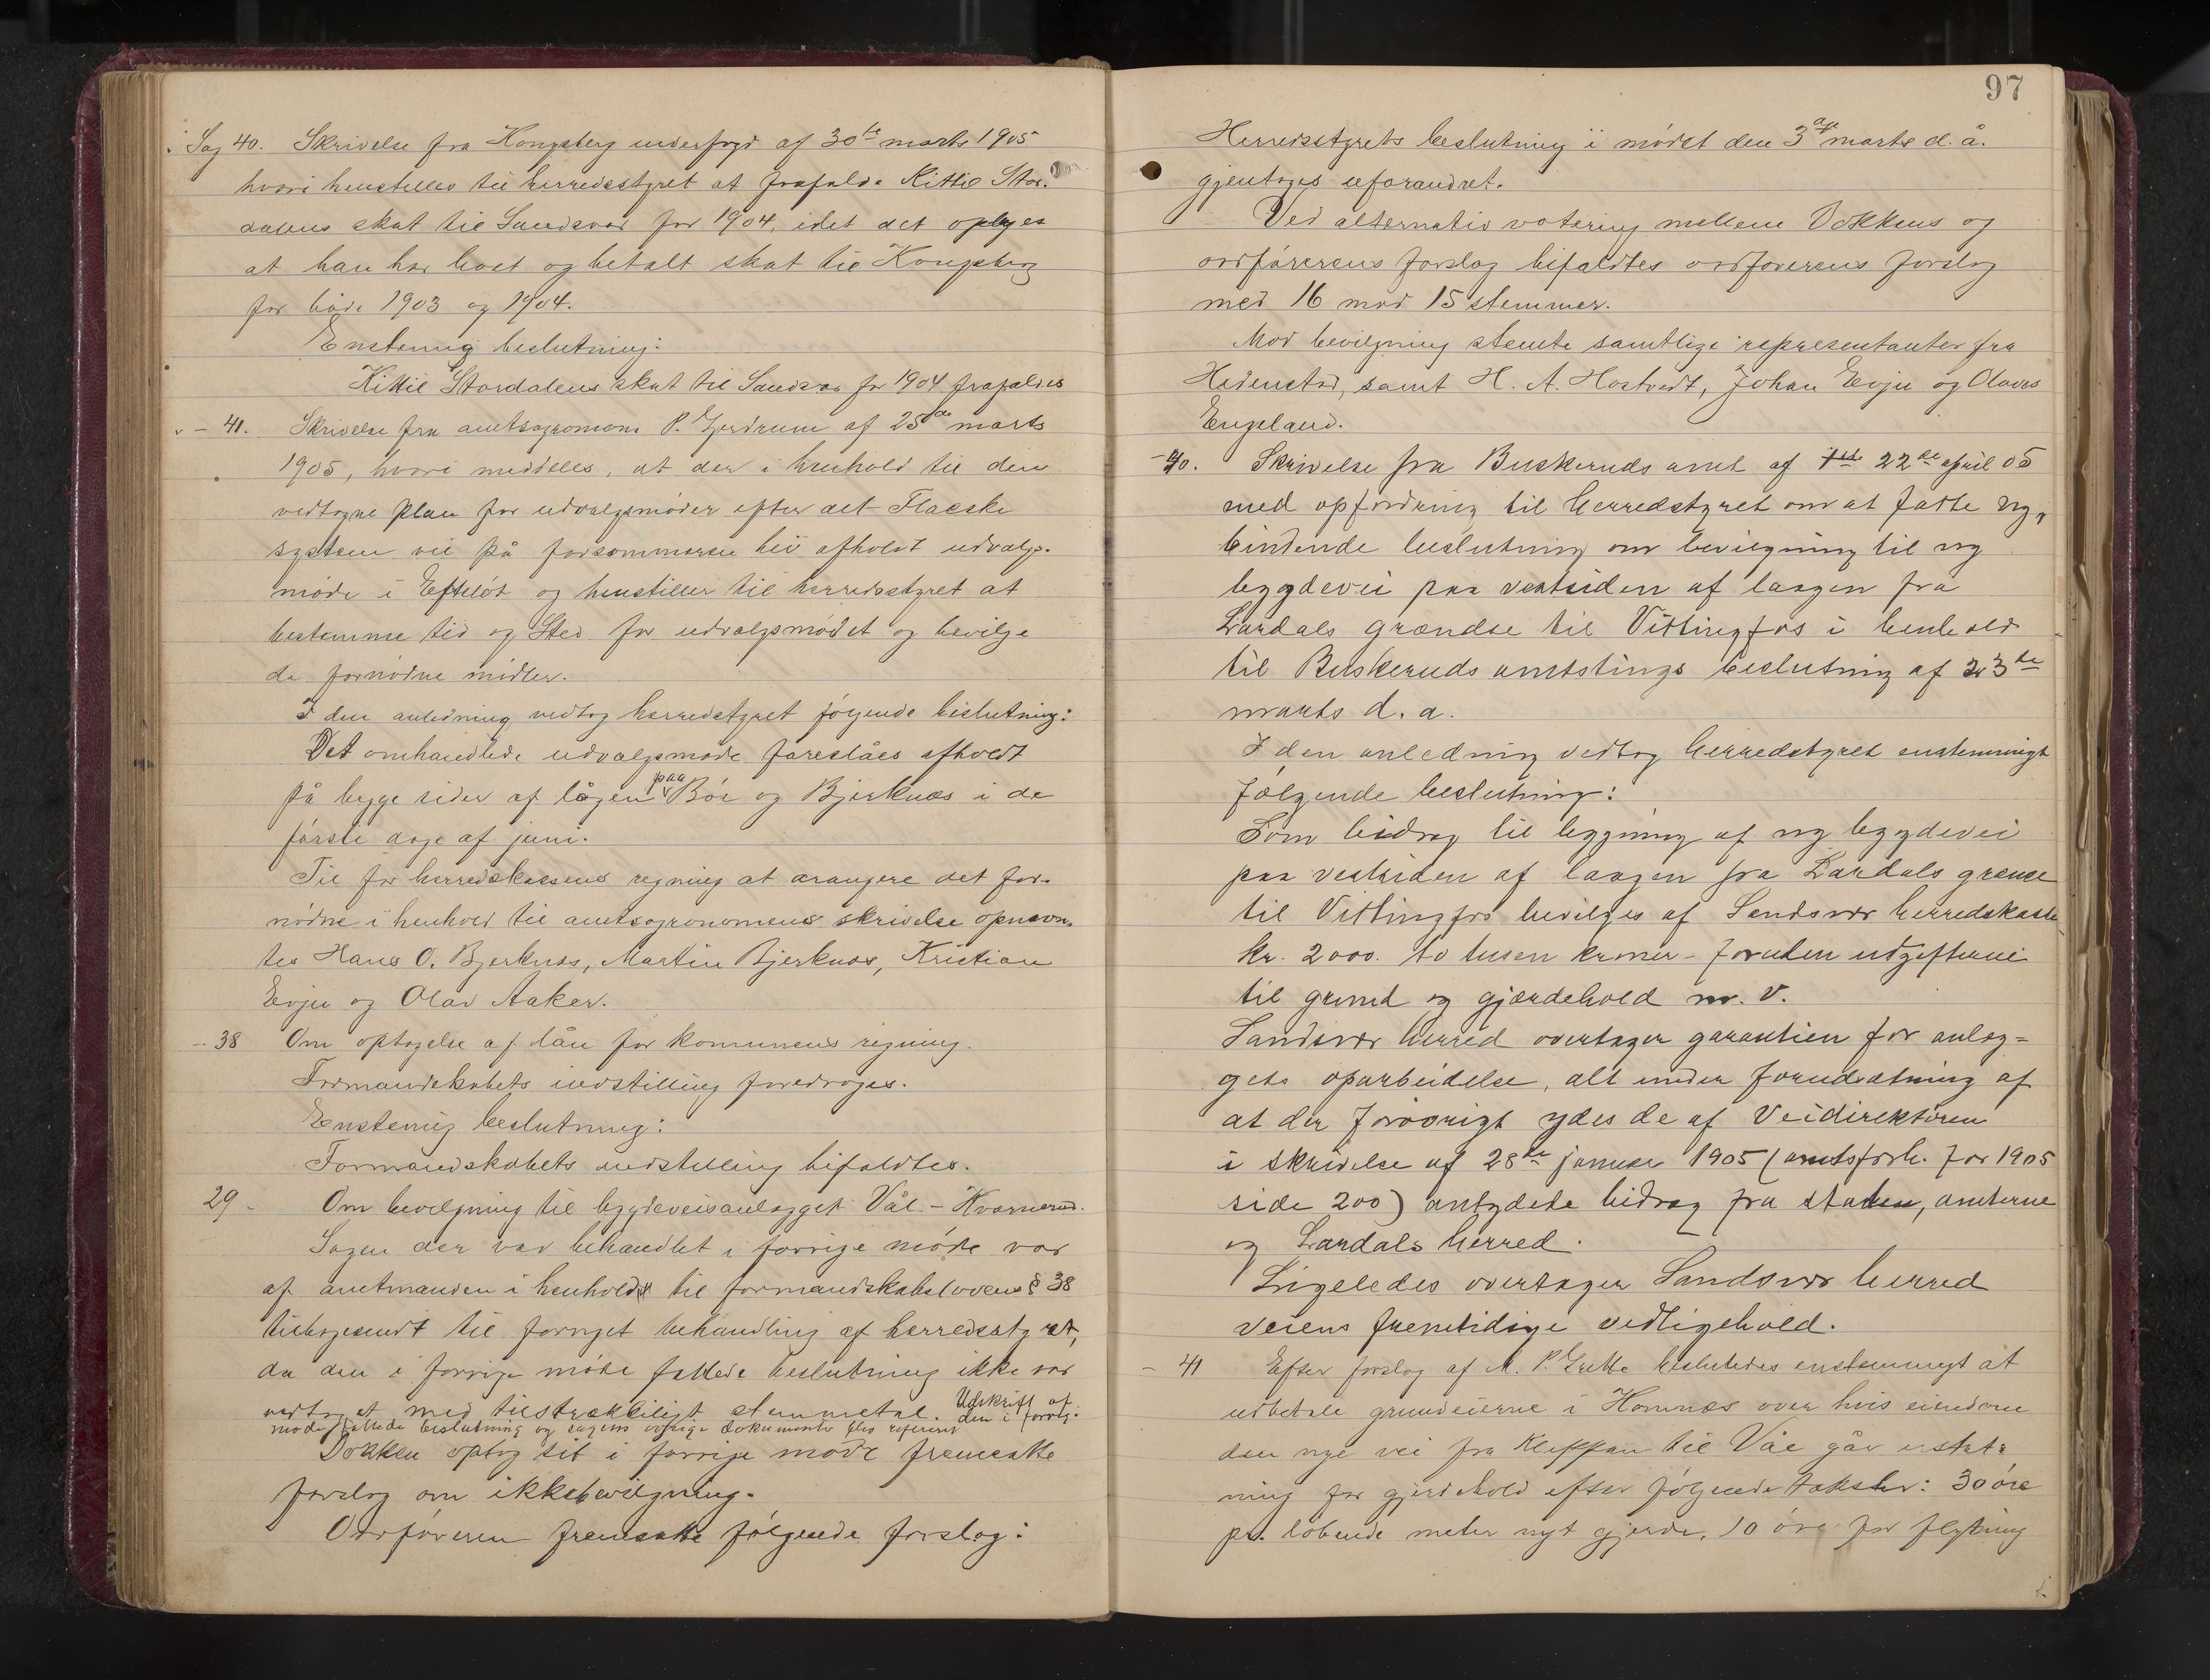 Sag 40. Skrivelse fra Kongsberg underfogd af 30te marts 1905
hvori henstilles til herredsstyret at frafalde Kittil Stor-
dalens skat til Sandsvær for 1904, idet det oplyses
at han har boet og betalt skat til Kongsberg
for både 1903 og 1904.
Enstemig beslutning:
Kittil Stordalens skat til Sandsvær for 1904 frafaldes
- 41. Skrivelse fra amtsagronom P. Gjerdrum af 25de marts
1905, hvori meddeles, at der i henhold til den
vedtagne plan for udvalgsmøder efter det Flaeske
system vil på forsommeren bli afholdt udvalgs-
møde i Efteløt og henstiller til herredsstyret at
bestemme tid og Sted for udvalgsmødet og bevilge
de fornødne midler.
I den anledning vedtog herredsstyret følgende beslutning:
Det omhandlede udvalgsmøde foreslåes afholdt
på begge sider af lågen paa Bøe og Bjerknæs i de
første dage af juni.
Til for herredskassens regning at arangere det for-
nødne i henhold til amtsagronomens skrivelse opnævn-
tes Hans O. Bjerknæs, Martin Bjerknæs, Kristian
Evju og Olav Aaker.
- 38 Om optagelse af lån for kommunens regning.
Formandskabets indstilling foredroges.
Enstemig beslutning:
Formandskabets indstilling bifaldtes.
29 - Om bevilgning til bygdeveisanlægget Vål - Kværnerud.
Sagen der var behandlet i forrige møde var
af amtmanden i henhold til formandskabslovens § 38
tilbagesendt til fornyet behandling af herredsstyret,
da den i forrige møde fattede beslutning ikke var
vedtaget med tilstrækkeligt stemmetal. Udskrift af den i forrige
møde fattede beslutning og sagens øvrige dokumenter blev refereret
Dokken optog sit i forrige møde fremsatte
forslag om ikkebevilgning.
Ordføreren fremsatte følgende forslag:
97
Herredsstyrets beslutning i mødet den 3die marts d. å.
gjentages uforandret.
Ved alternativ votering mellem Dokkens og
ordførerens forslag bifaldtes ordførerens forslag
med 16 mod 15 stemmer.
Mod bevilgning stemte samtlige representanter fra
Hedenstad, samt H. A. Hostvedt, Johan Evju og Olaves
Engeland.
- 40. Skrivelse fra Buskeruds amt af 22de april 05
med opfordring til herredstyret om at fatte ny,
bindende beslutning om bevilgning til ny
bygdevei paa vestsiden af laagen fra
Lardals grændse til Vittingfos i henhold
til Buskeruds amtstings beslutning af 23de
marts d. a.
I den anledning vedtog herredstyret enstemmigt
følgende beslutning:
Som bidrag til bygning af ny bygdevei
paa vestsiden af laagen fra Lardals grænse
til Vittingfos bevilges af Sandsvær herredskasse
kr. 2000. to tusen kroner - foruden udgifterne
til grund og gjærdehold m. v.
Sandsvær herred overtager garantien for anlæg-
gets oparbeidelse, alt under forudsætning af
at der forøvrigt ydes de af Veidirektøren
i skrivelse af 28de januar 1905 (amtsforh. for 1905
side 200) antydede bidrag fra staten, amterne
og Lardals herred.
Ligeledes overtager Sandsvær herred
veiens fremtidige vedligehold.
- 41 Efter forslag af A. P. Grette besluttedes enstemmigt at
udbetale grundeierne i Homnæs over hvis eiendom
den nye vei fra Kleppan til Våe går erstat-
ning for gjerdehold efter følgende takster: 30 øre
pr. løbende meter nyt gjerde, 10 øre for flytning